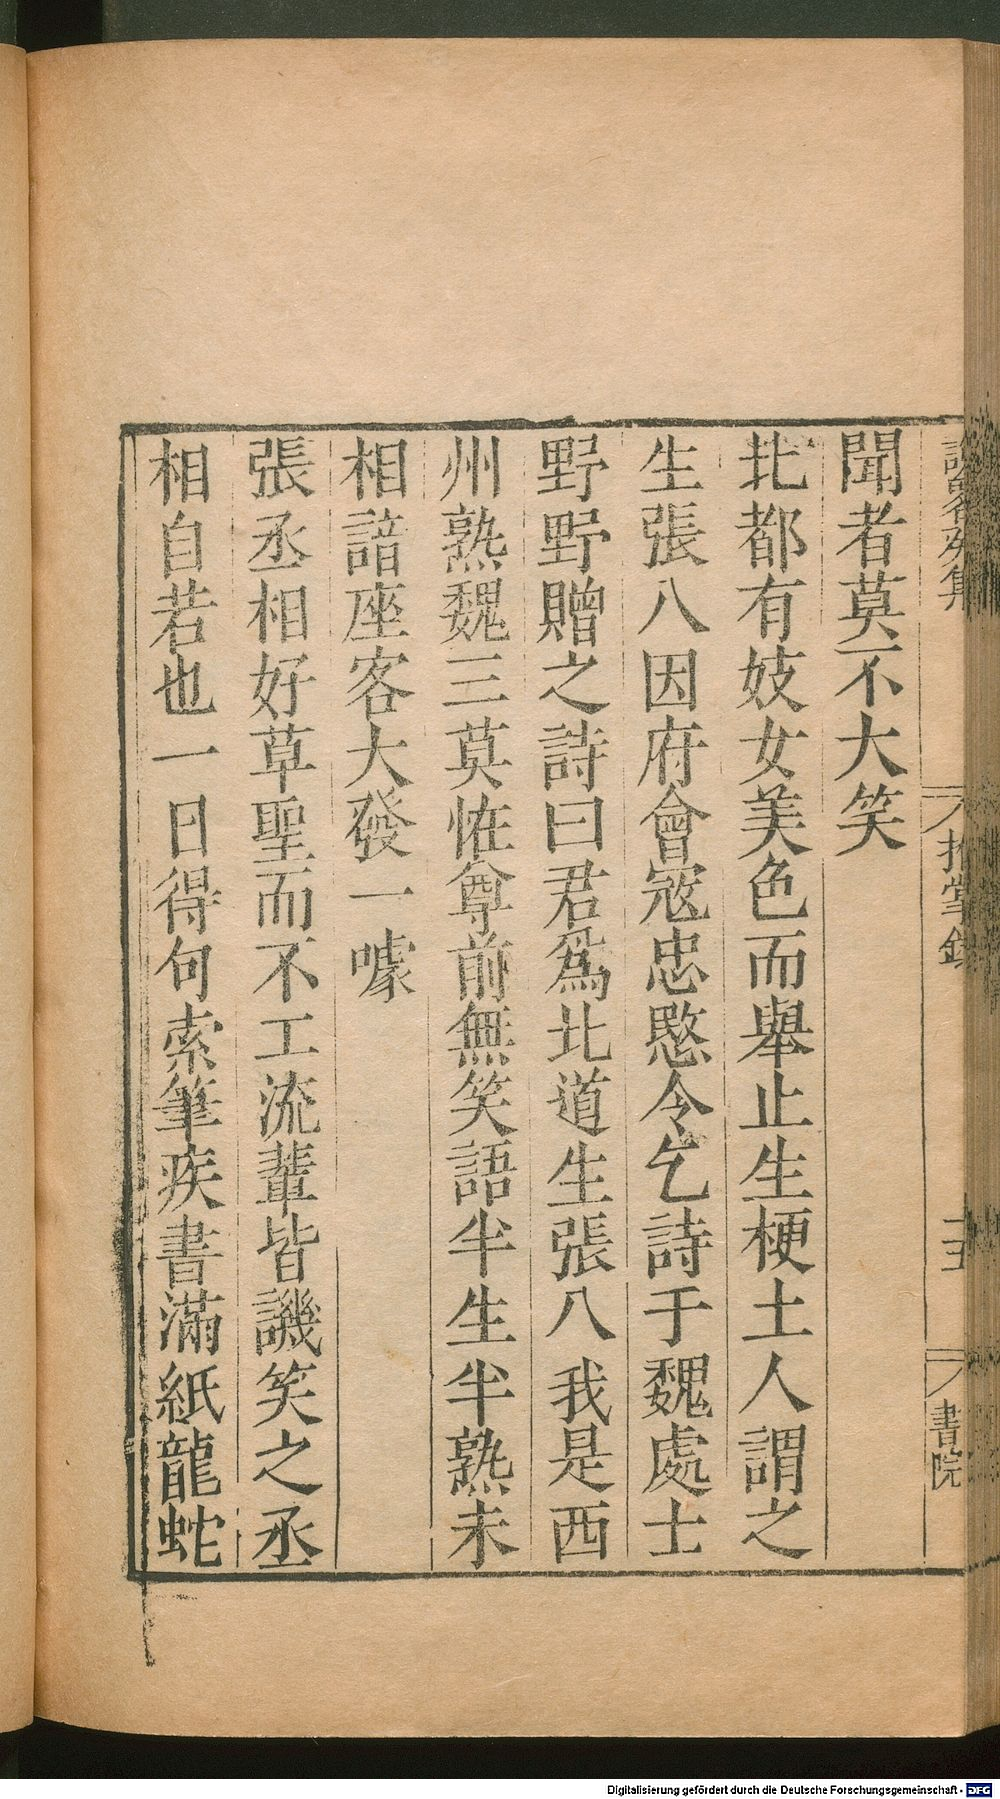 聞者莫不大笑
北都有妓女美色而舉止生梗土人謂之
生張八因府會寇忠愍令乞詩于魏處士
野野贈之詩曰君爲北道生張八我是西
州熟魏三莫恠尊前無笑語半生半熟未
相諳座客大發一噱
張丞相好草聖而不工流輩皆譏笑之丞
相自若也一日得句索筆疾書滿紙龍蛇
掌
書院
Digitalisierung gefördert durch die Deutsche Forschungsgemeinschaft - DFG